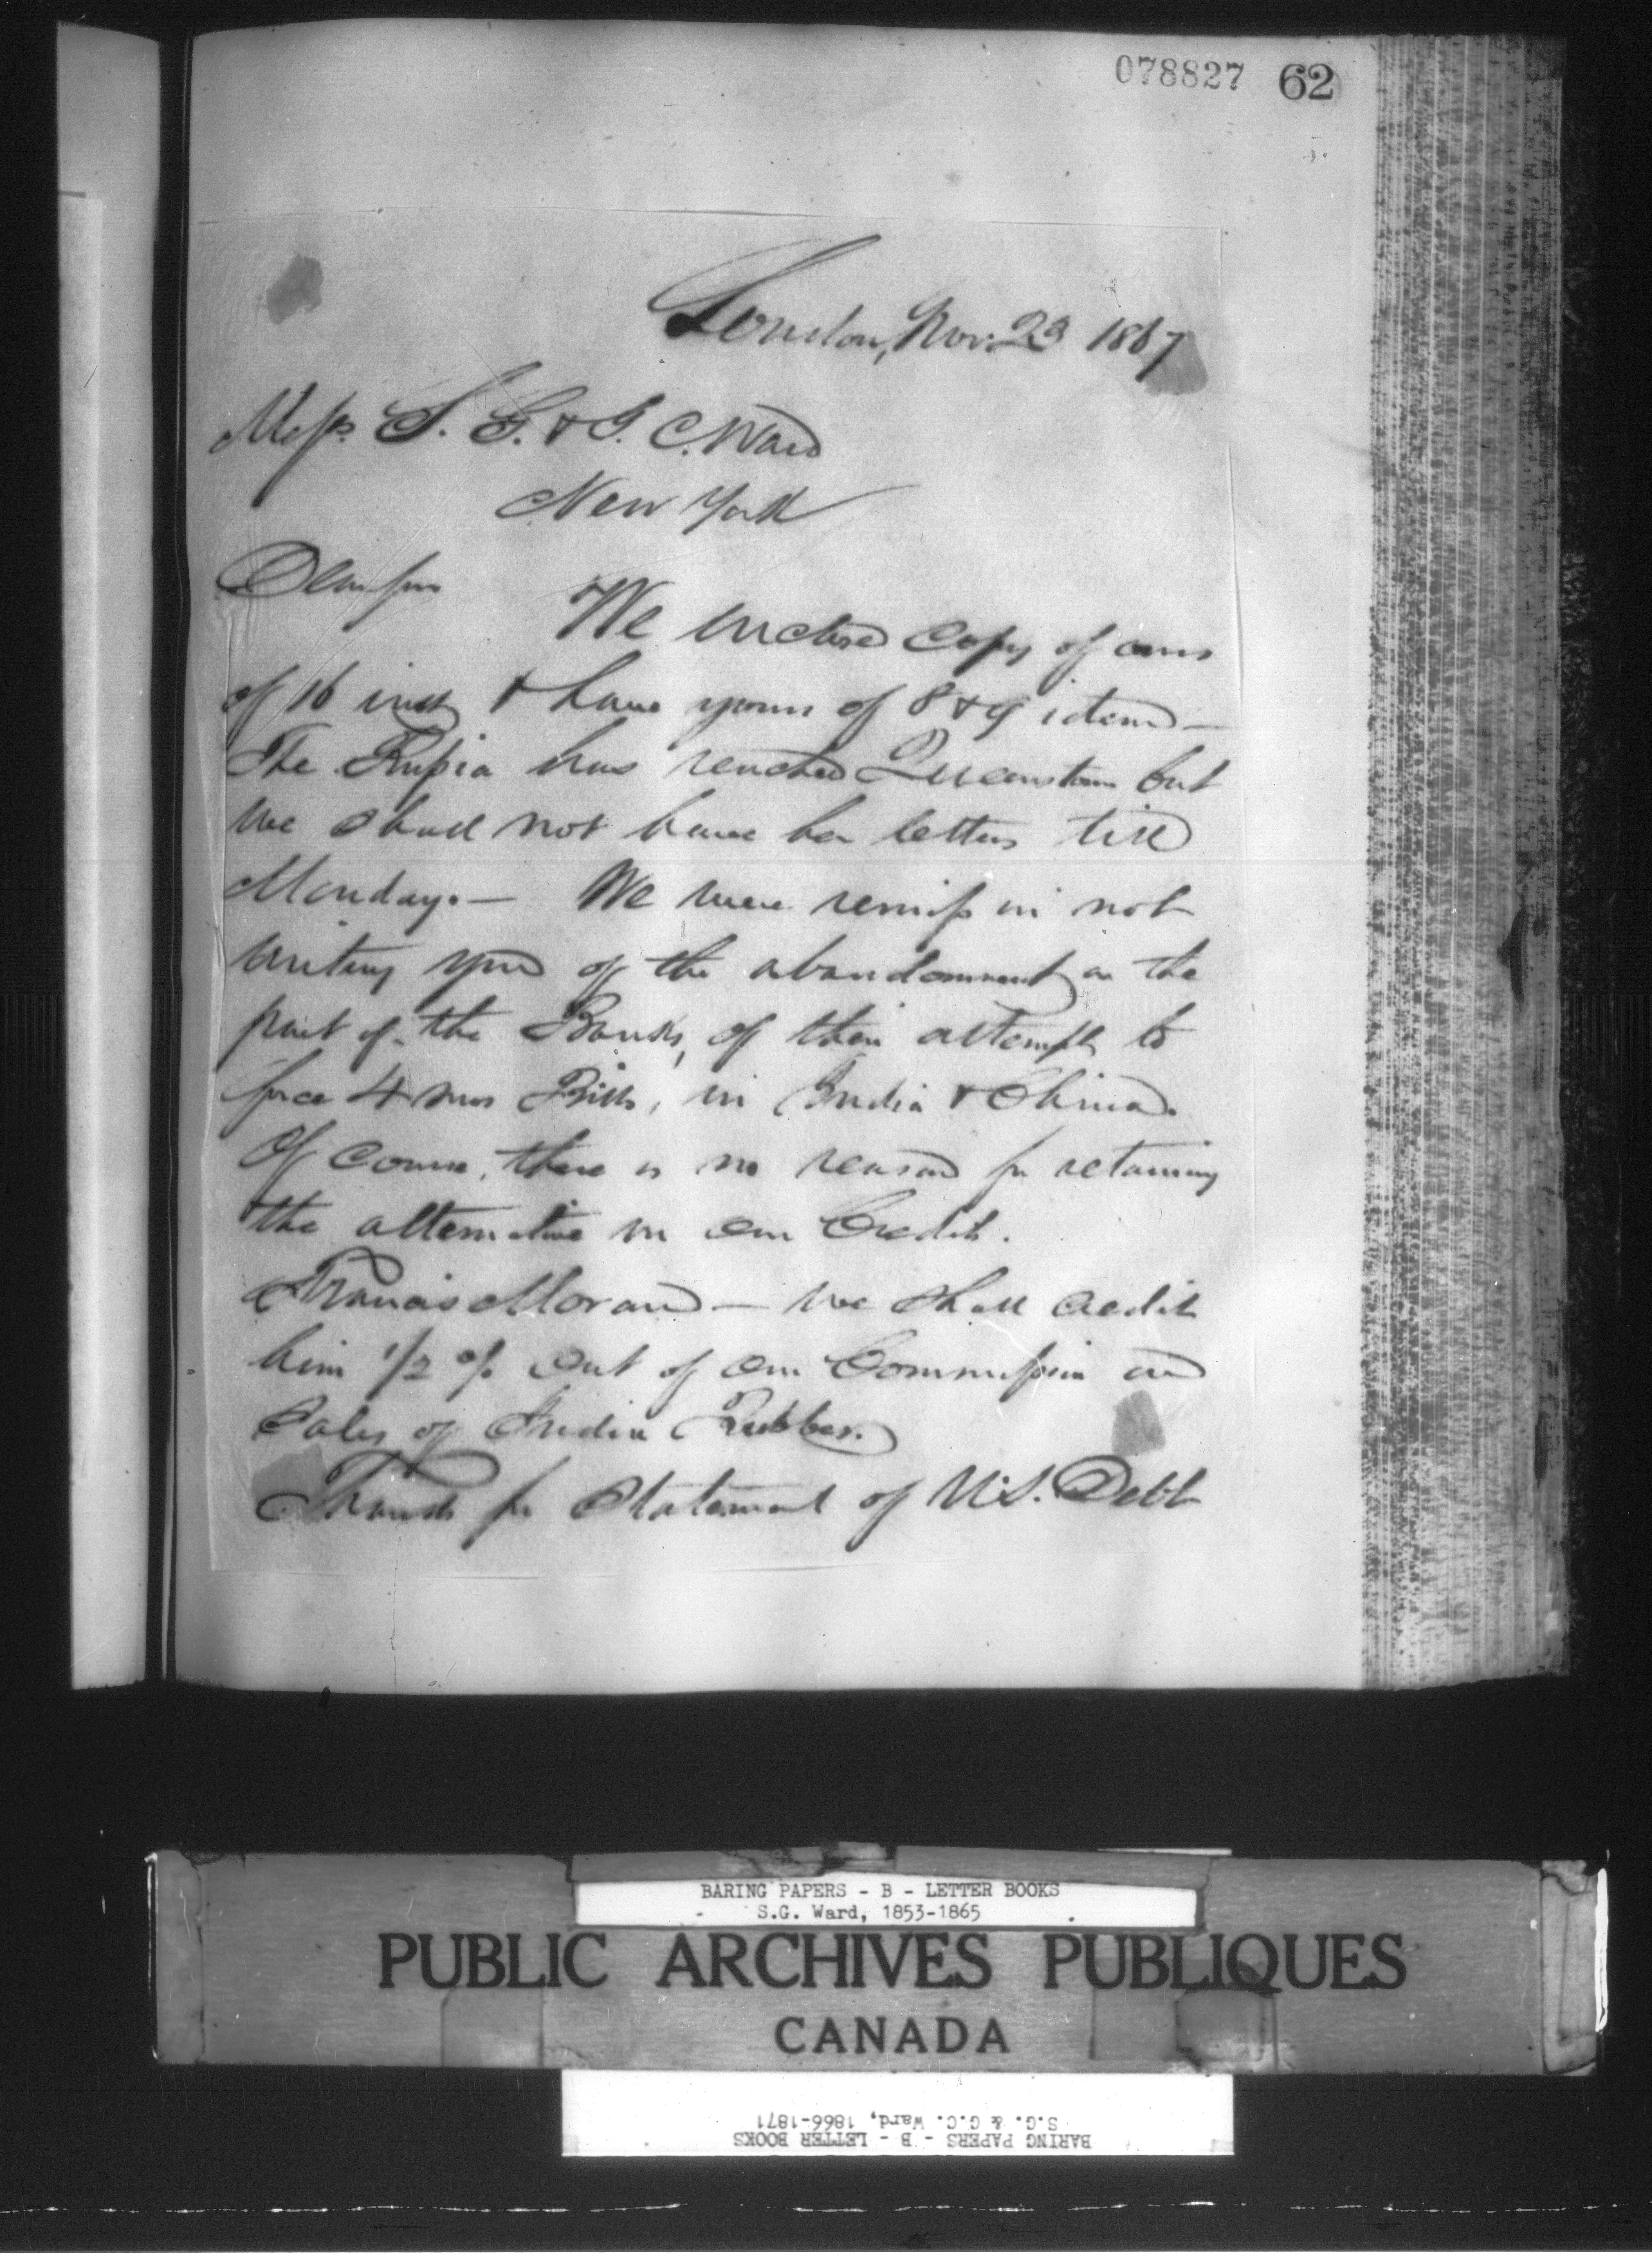 078827 62
London, Nov. 23 1867
Mess. S. G. & G. C. Ward
New York
Dear Sirs
We enclose copy of ours
of 16 inst & have yours of 8 & 9 idem —
The Russia has reached Queenstown but
we shall not have her letters till
Monday. — We were remiss in not
writing you of the abandonment on the
part of the Banks, of their attempt to
force 4 mos Bills, in India & China.
Of course, there is no reason for retaining
the alternative in our Credits.
Francis Moran — we shall credit
him 1/2 % out of our Commission on
Sales of India Rubber.
Thanks for Statement of U.S. Debt
BARING PAPERS - B - LETTER BOOKS
S.G. Ward, 1853-1865
PUBLIC ARCHIVES PUBLIQUES
CANADA
BARING PAPERS - B - LETTER BOOKS
S.G. & G.C. Ward, 1866-1871